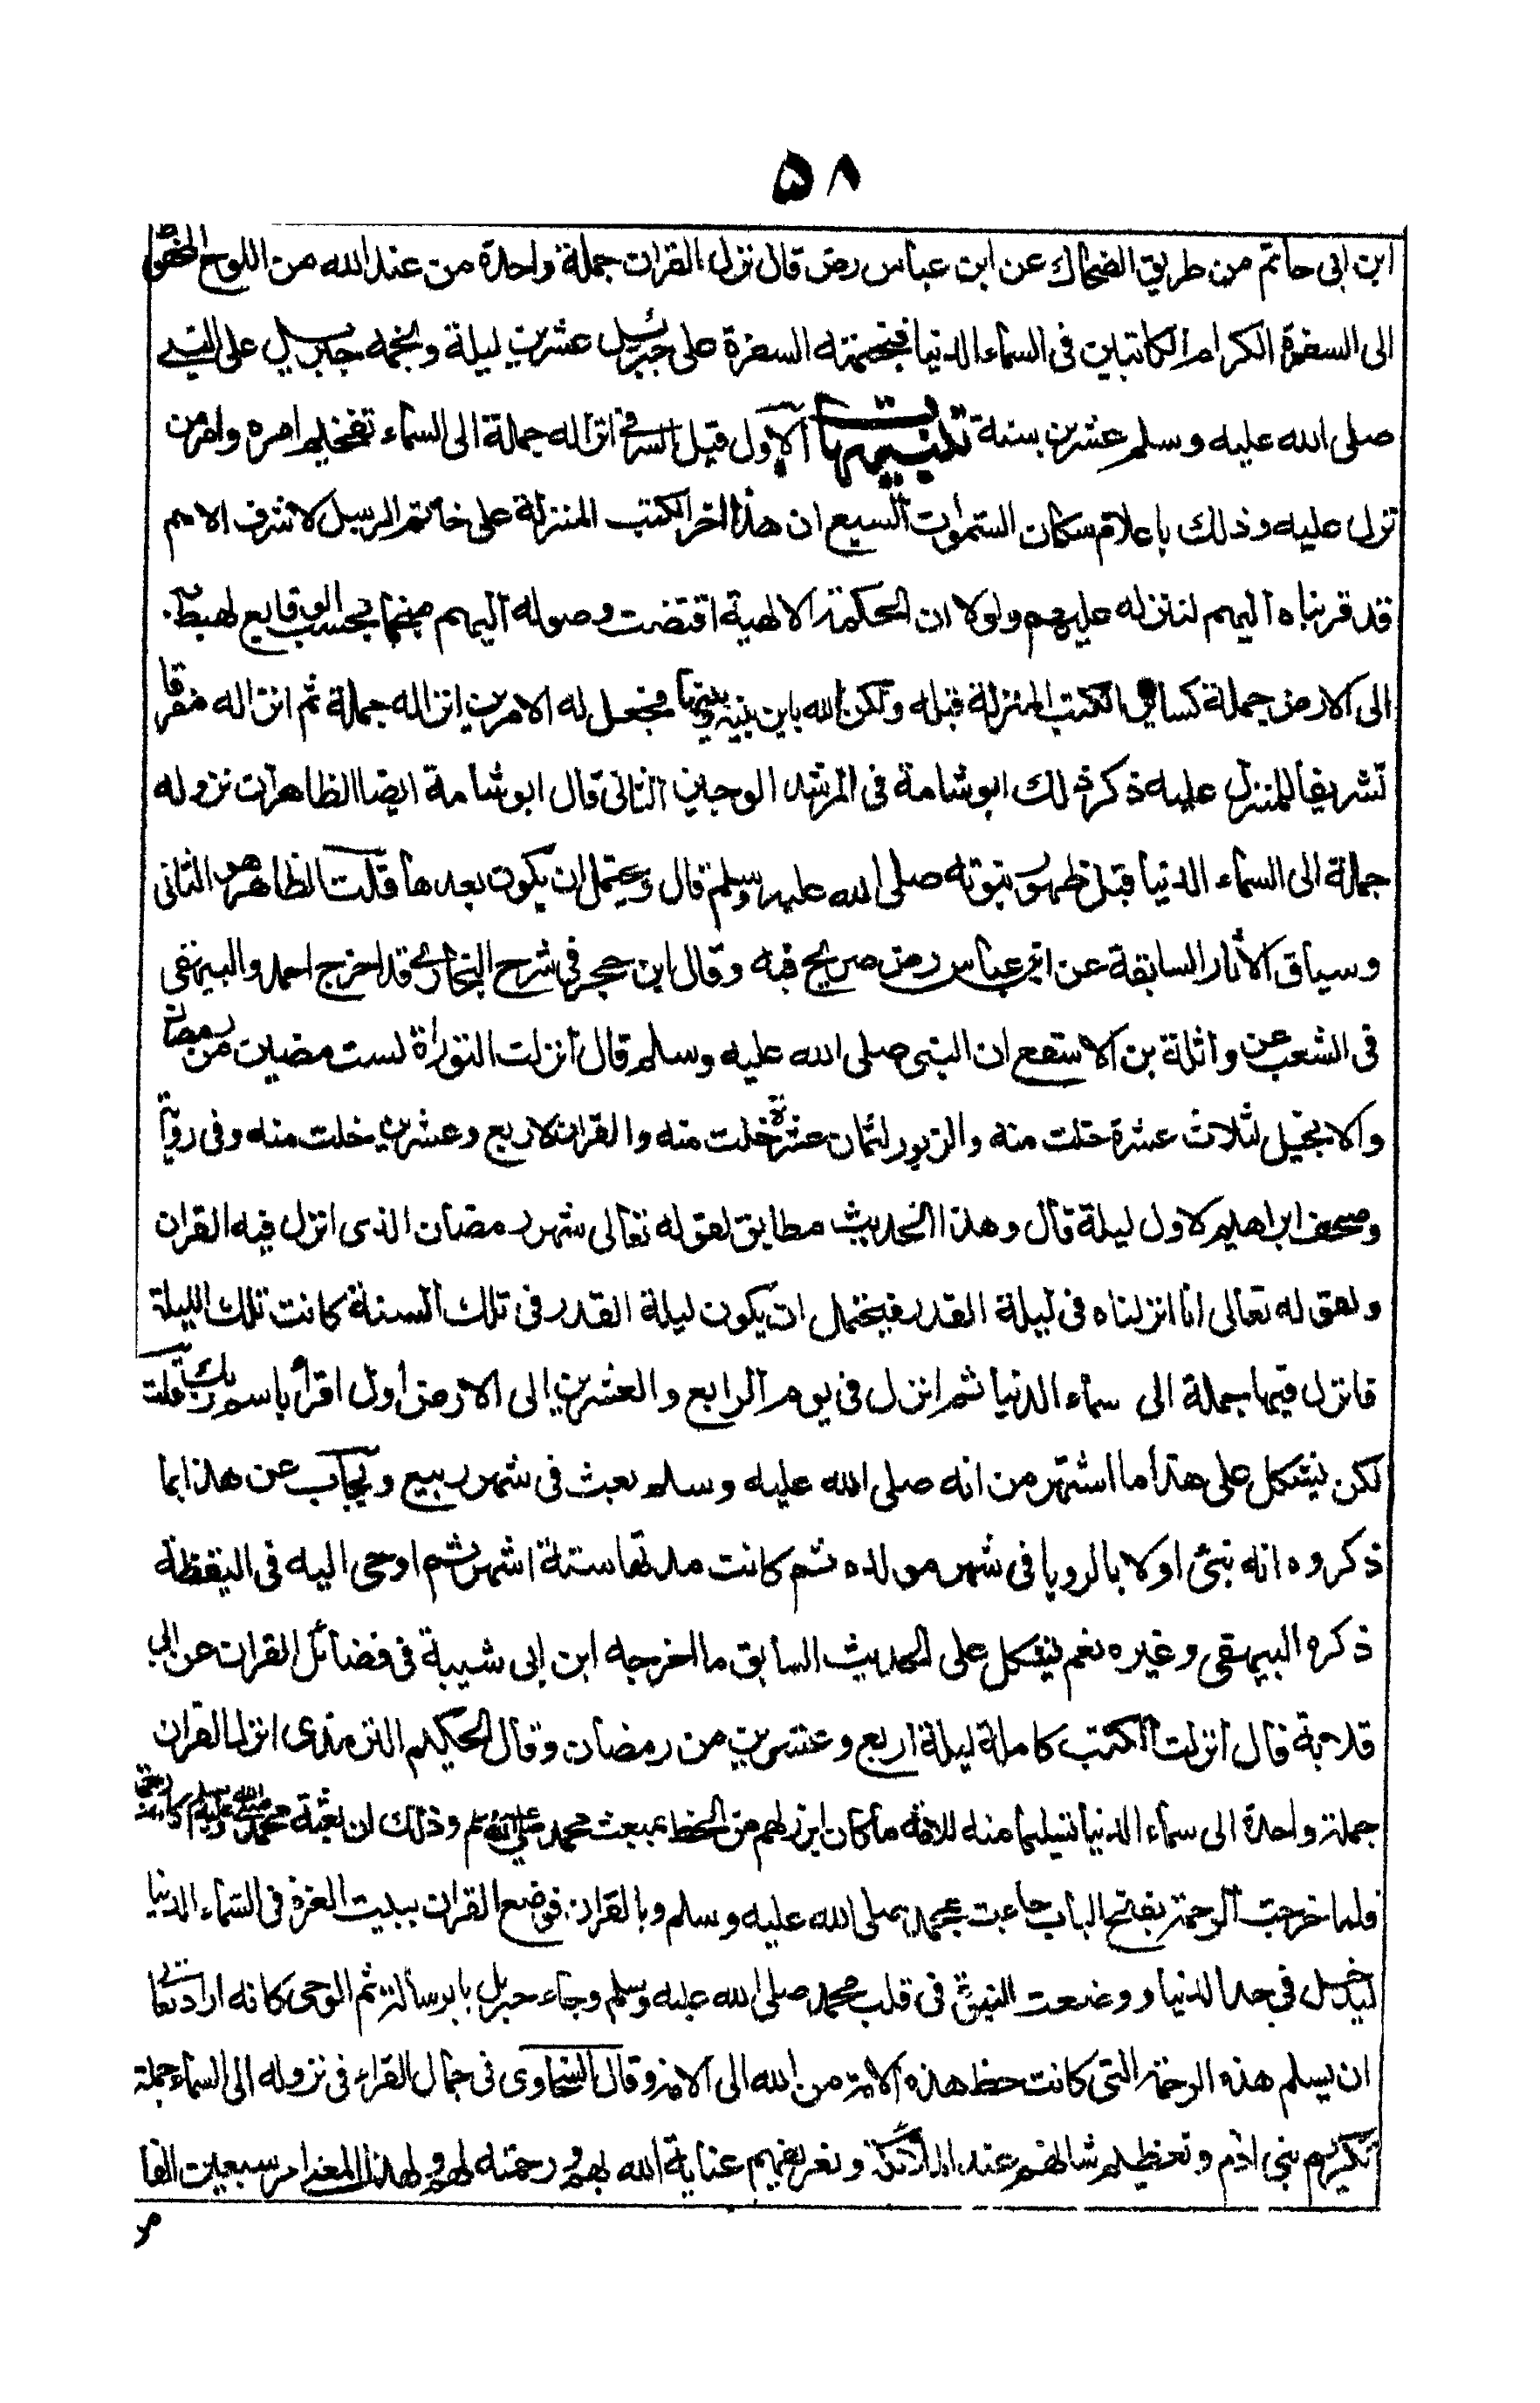 ٥٨
ابن ابى حاتم من طريق الضحاك عن ابن عباس رض قال نزل القران جملة واحدة من عند الله من اللوح المحفوظ
الى السفرة الكرام الكاتبين فى السماء الدنيا فنجمته السفرة على جبرئيل عشرين ليلة ونجمه جبريل على النبي
صلى الله عليه وسلم عشرين سنة تنبيهات الاول قيل السر فى انزاله جملة الى السماء تفخيم امره وامر من
نزل عليه وذلك باعلام سكان السموات السبع ان هذا اخر الكتب المنزلة على خاتم الرسل لاشرف الامم
قد قربناه اليهم لننزله عليهم ولولا ان الحكمة الالهية اقتضت وصوله اليهم منجما بحسب الوقايع لهبط به
الى الارض جملة كساير الكتب المنزلة قبله ولكن الله باين بينه وبينها فجعل له الامرين انزاله جملة ثم انزاله مفرقا
تشريفا للمنزل عليه ذكر ذلك ابو شامة فى المرشد الوجيز الثانى قال ابو شامة ايضا الظاهر ان نزوله
جملة الى السماء الدنيا قبل ظهور نبوته صلى الله عليه وسلم قال ويحتمل ان يكون بعدها قلت الظاهر هو الثانى
وسياق الاثار السابقة عن ابن عباس رض صريح فيه وقال ابن حجر فى شرح البخارى قد اخرج احمد والبيهقى
فى الشعب عن واثلة بن الاسقع ان النبى صلى الله عليه وسلم قال انزلت التوراة لست مضين من رمضان
والانجيل لثلاث عشرة خلت منه والزبور لثمان عشرة خلت منه والقران لاربع وعشرين خلت منه وفى رواية
وصحف ابراهيم لاول ليلة قال وهذا الحديث مطابق لقوله تعالى شهر رمضان الذى انزل فيه القران
ولقوله تعالى انا انزلناه فى ليلة القدر فيحتمل ان يكون ليلة القدر فى تلك السنة كانت تلك الليلة
فانزل فيها جملة الى سماء الدنيا ثم انزل فى يوم الرابع والعشرين الى الارض اول اقرأ باسم ربك قلت
لكن يشكل على هذا ما اشتهر من انه صلى الله عليه وسلم بعث فى شهر ربيع ويجاب عن هذا بما
ذكروه انه نبئ اولا بالرويا فى شهر مولده ثم كانت مدتها ستة اشهر ثم اوحى اليه فى اليقظة
ذكره البيهقى وغيره نعم يشكل على الحديث السابق ما اخرجه ابن ابى شيبة فى فضائل القران عن ابى
قلابة قال انزلت الكتب كاملة ليلة اربع وعشرين من رمضان وقال الحكيم الترمذى انزل القران
جملة واحدة الى سماء الدنيا تسليما منه للامة ما كان ابرز لهم من الحظ بمبعث محمد صلى الله عليه وسلم وذلك ان بعثة محمد صلى الله عليه وسلم كانت رحمة
فلما خرجت الرحمة بفتح الباب جاءت بمحمد صلى الله عليه وسلم وبالقران فوضع القران ببيت العزة فى السماء الدنيا
ليدخل فى حد الدنيا ووضعت النبوة فى قلب محمد صلى الله عليه وسلم وجاء جبريل بالرسالة ثم الوحى كانه اراد تعالى
ان يسلم هذه الرحمة التى كانت حظ هذه الامة من الله الى الامة وقال السخاوى فى جمال القراء فى نزوله الى السماء جملة
تكريم بنى ادم وتعظيم شانهم عند الملائكة وتعريفهم عناية الله بهم ورحمته لهم ولهذا المعنى امر سبعين الفا
من